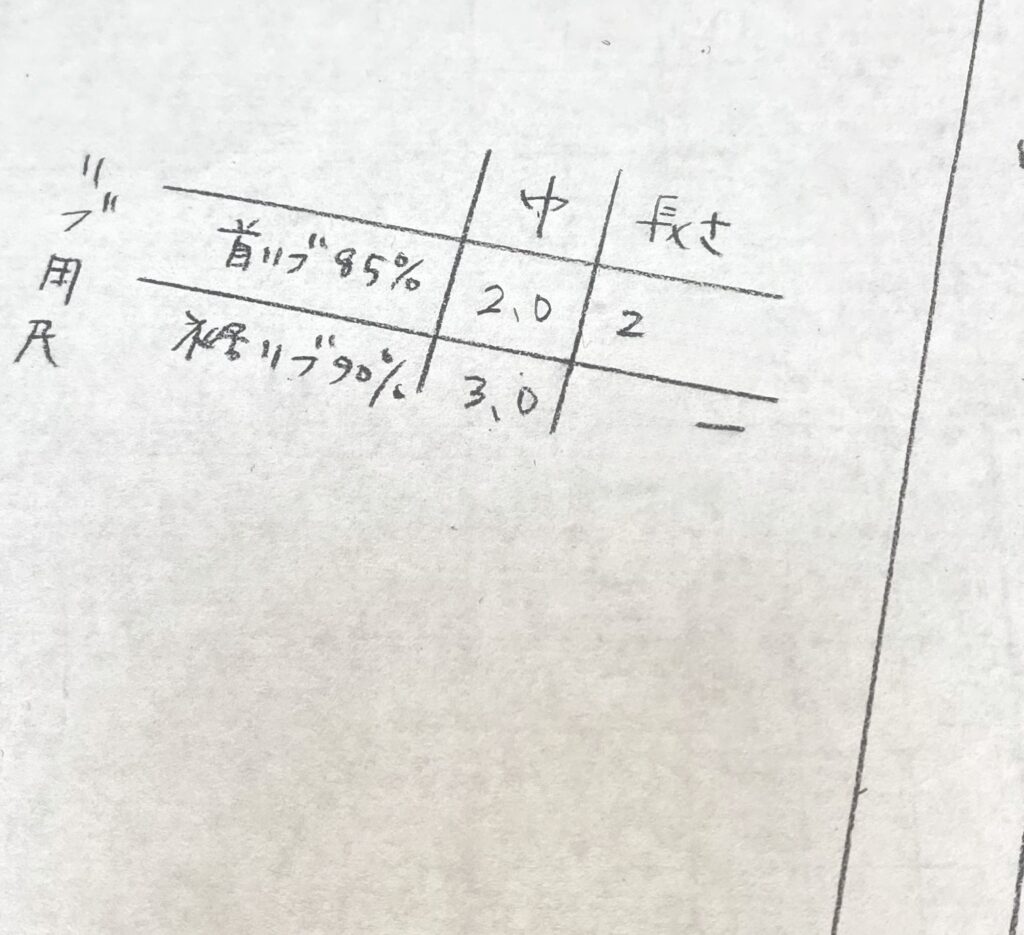 リブ用尺
巾 長さ
首リブ85% 2.0 2
裾リブ90% 3.0 ー